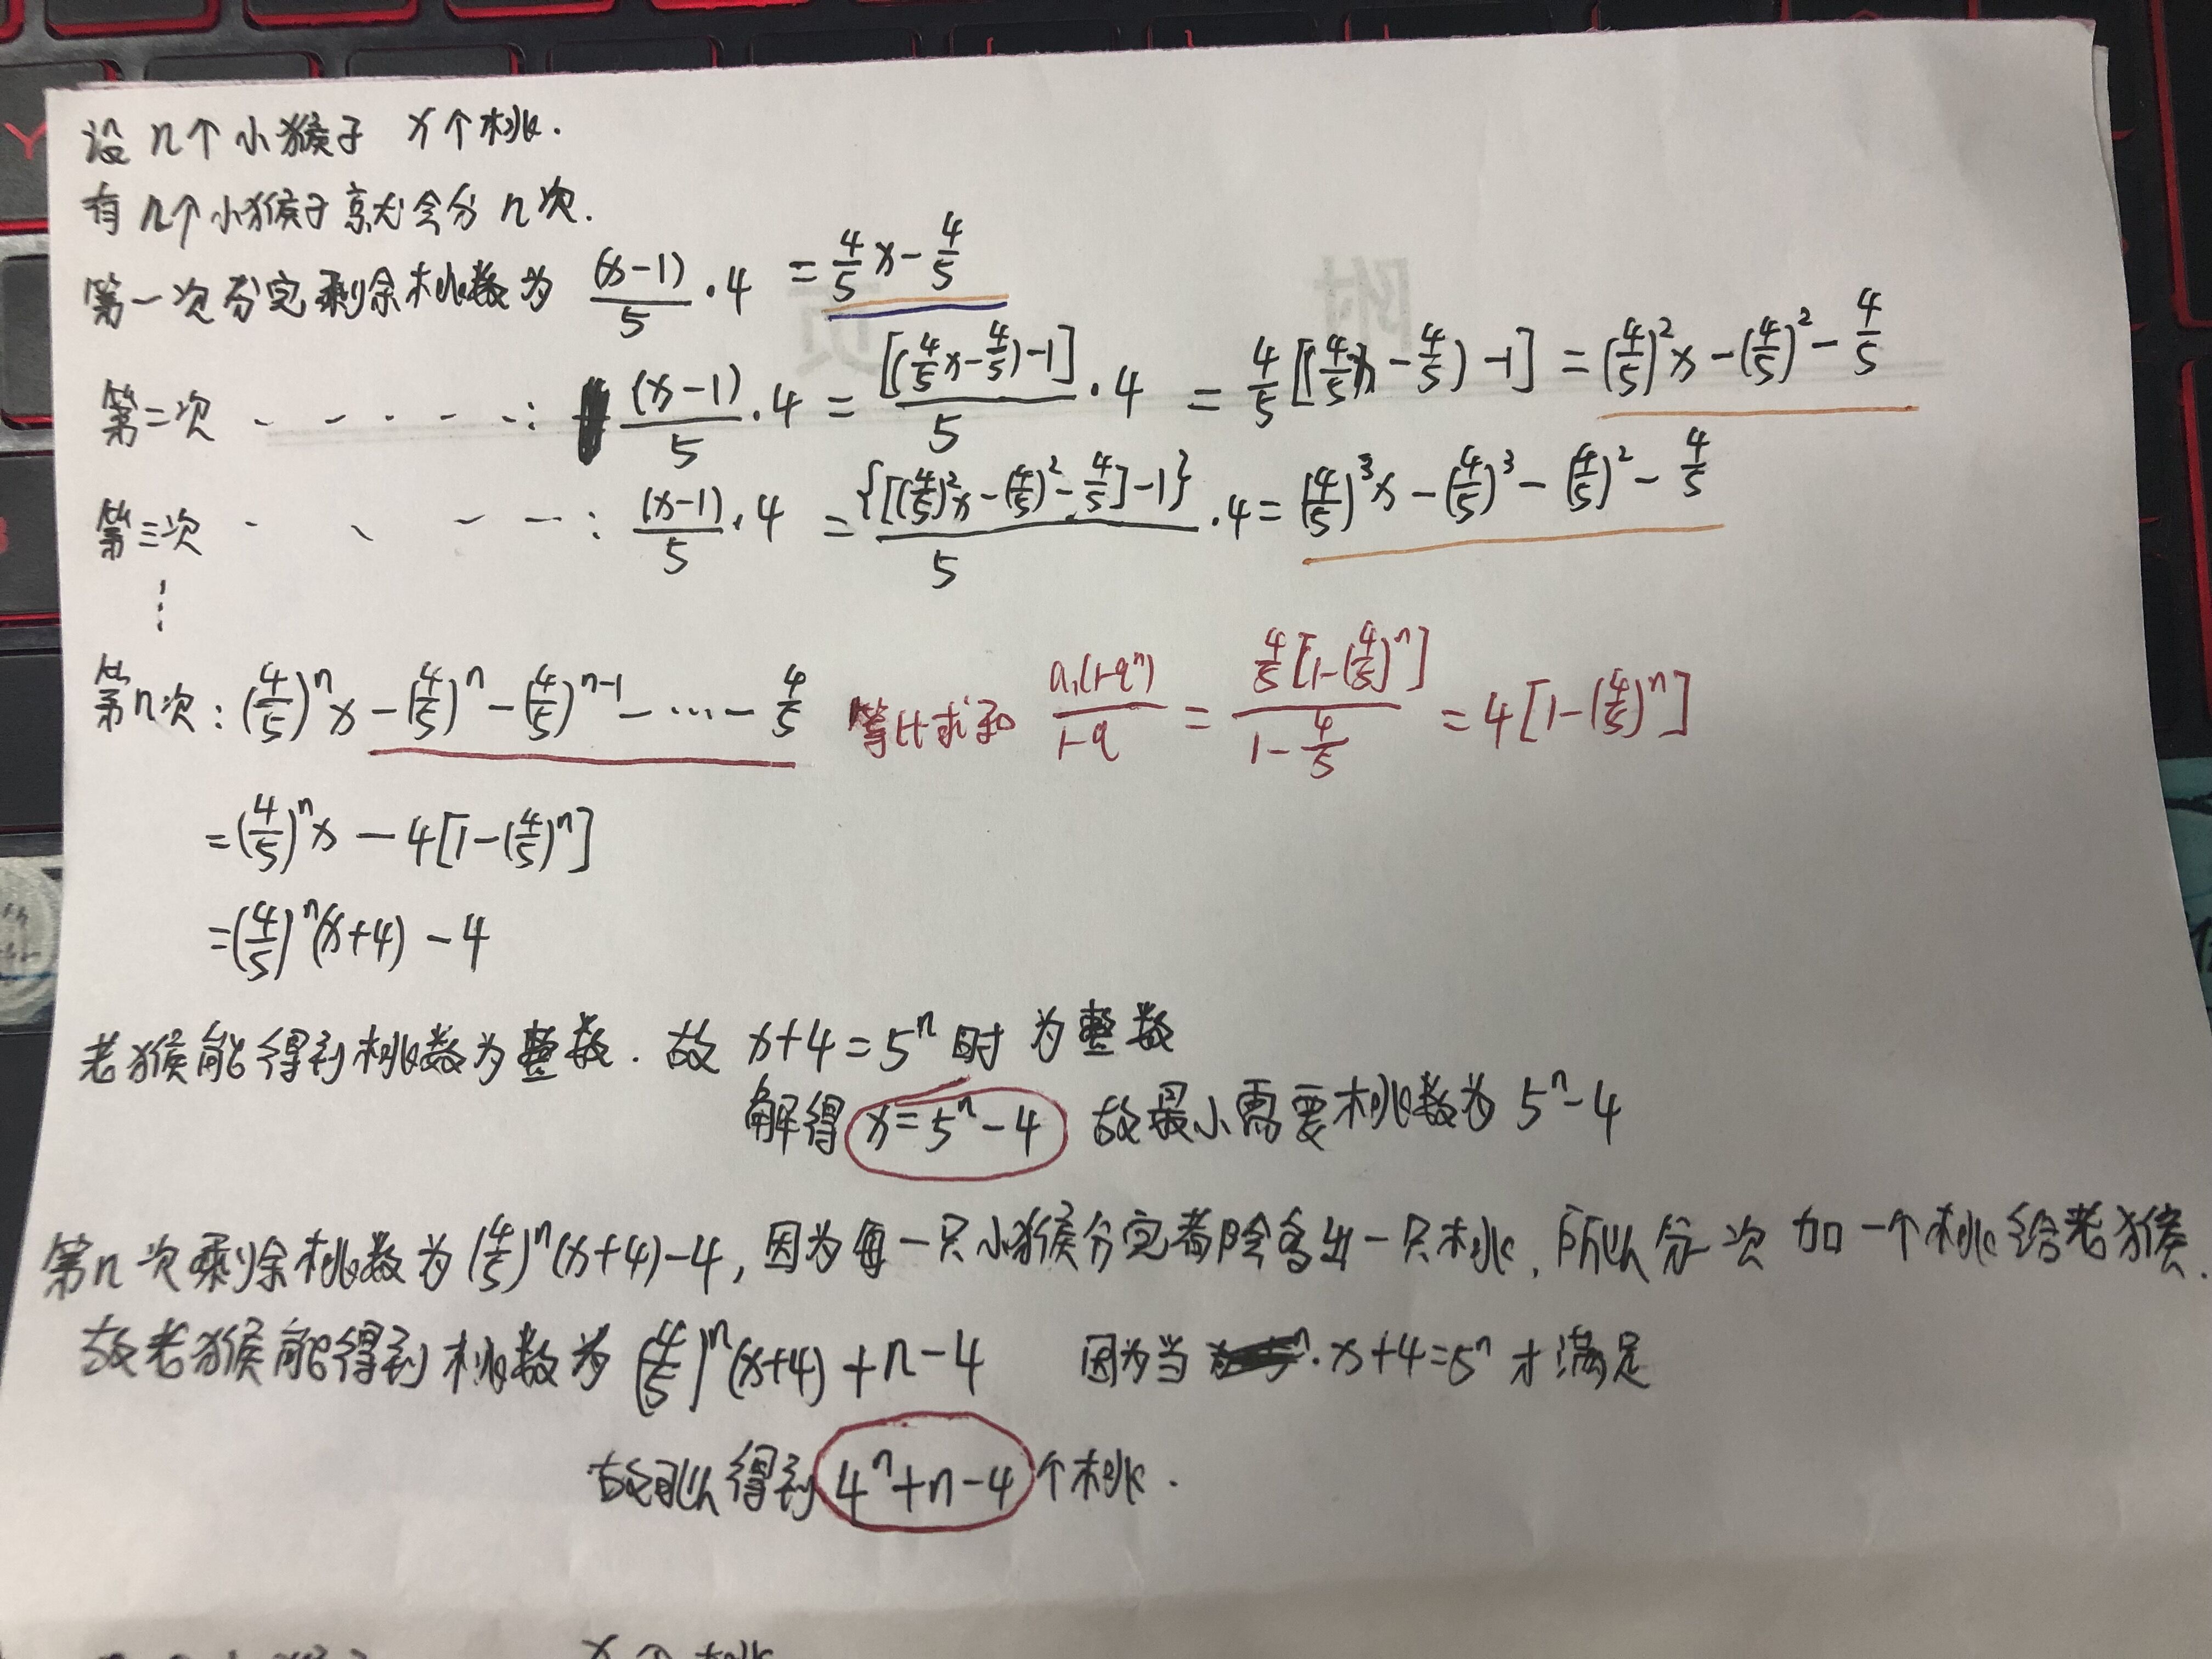 设n个小猴子 x个桃.
有n个小猴子就会分n次.
第一次分完剩余桃数为 (x-1)/5·4 = 4/5x - 4/5
第二次 - - - - - : (x-1)/5·4 = [(4/5x-4/5)-1]/5·4 = 4/5[(4/5x-4/5)-1] = (4/5)²x-(4/5)²-4/5
第三次 - - - - : (x-1)/5·4 = {[(4/5)²x-(4/5)²-4/5]-1}/5·4 = (4/5)³x-(4/5)³-(4/5)²-4/5
⋮
第n次: (4/5)ⁿx-(4/5)ⁿ-(4/5)ⁿ⁻¹-…-4/5 等比求和 a₁(1-qⁿ)/(1-q) = 4/5[1-(4/5)ⁿ]/(1-4/5) = 4[1-(4/5)ⁿ]
=(4/5)ⁿx-4[1-(4/5)ⁿ]
=(4/5)ⁿ(x+4)-4
老猴能得到桃数为整数. 故 x+4=5ⁿ时为整数
解得 x=5ⁿ-4 故最小需要桃数为 5ⁿ-4
第n次剩余桃数为(4/5)ⁿ(x+4)-4, 因为每一只小猴分完都会多出一只桃, 所以分一次加一个桃给老猴.
故老猴能得到桃数为 (4/5)ⁿ(x+4)+n-4 因为当 x+4=5ⁿ才满足
故可以得到 4ⁿ+n-4 个桃.
x个桃